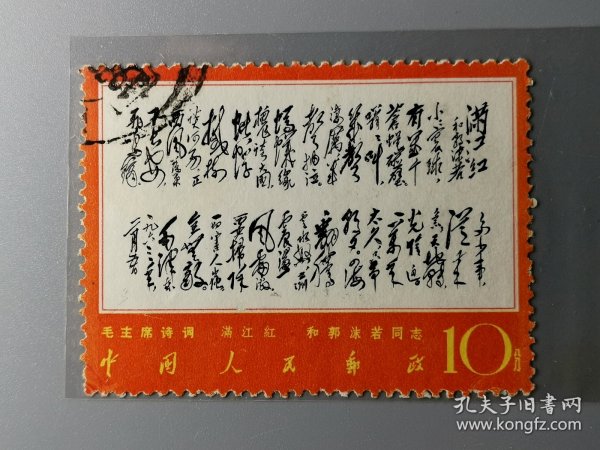 满江红
和郭沫若
小小寰球,
有几个
苍蝇碰壁
嗡嗡叫
几声
凄厉几
声抽泣
蚂蚁缘
槐夸大国
蚍蜉
撼树
谈何易正
西风落叶
下长安
飞鸣镝
多少事,
从来
急天地转
光阴迫
一万年
太久只争
朝夕四海
翻腾
云水怒五洲
震荡
风雷激
要扫除
一切害人虫
全无敌
毛泽东
一九六三年
二月五日
毛主席诗词 满江红 和郭沫若同志
中国人民邮政 10分
孔夫子旧书网
www.kongfz.com